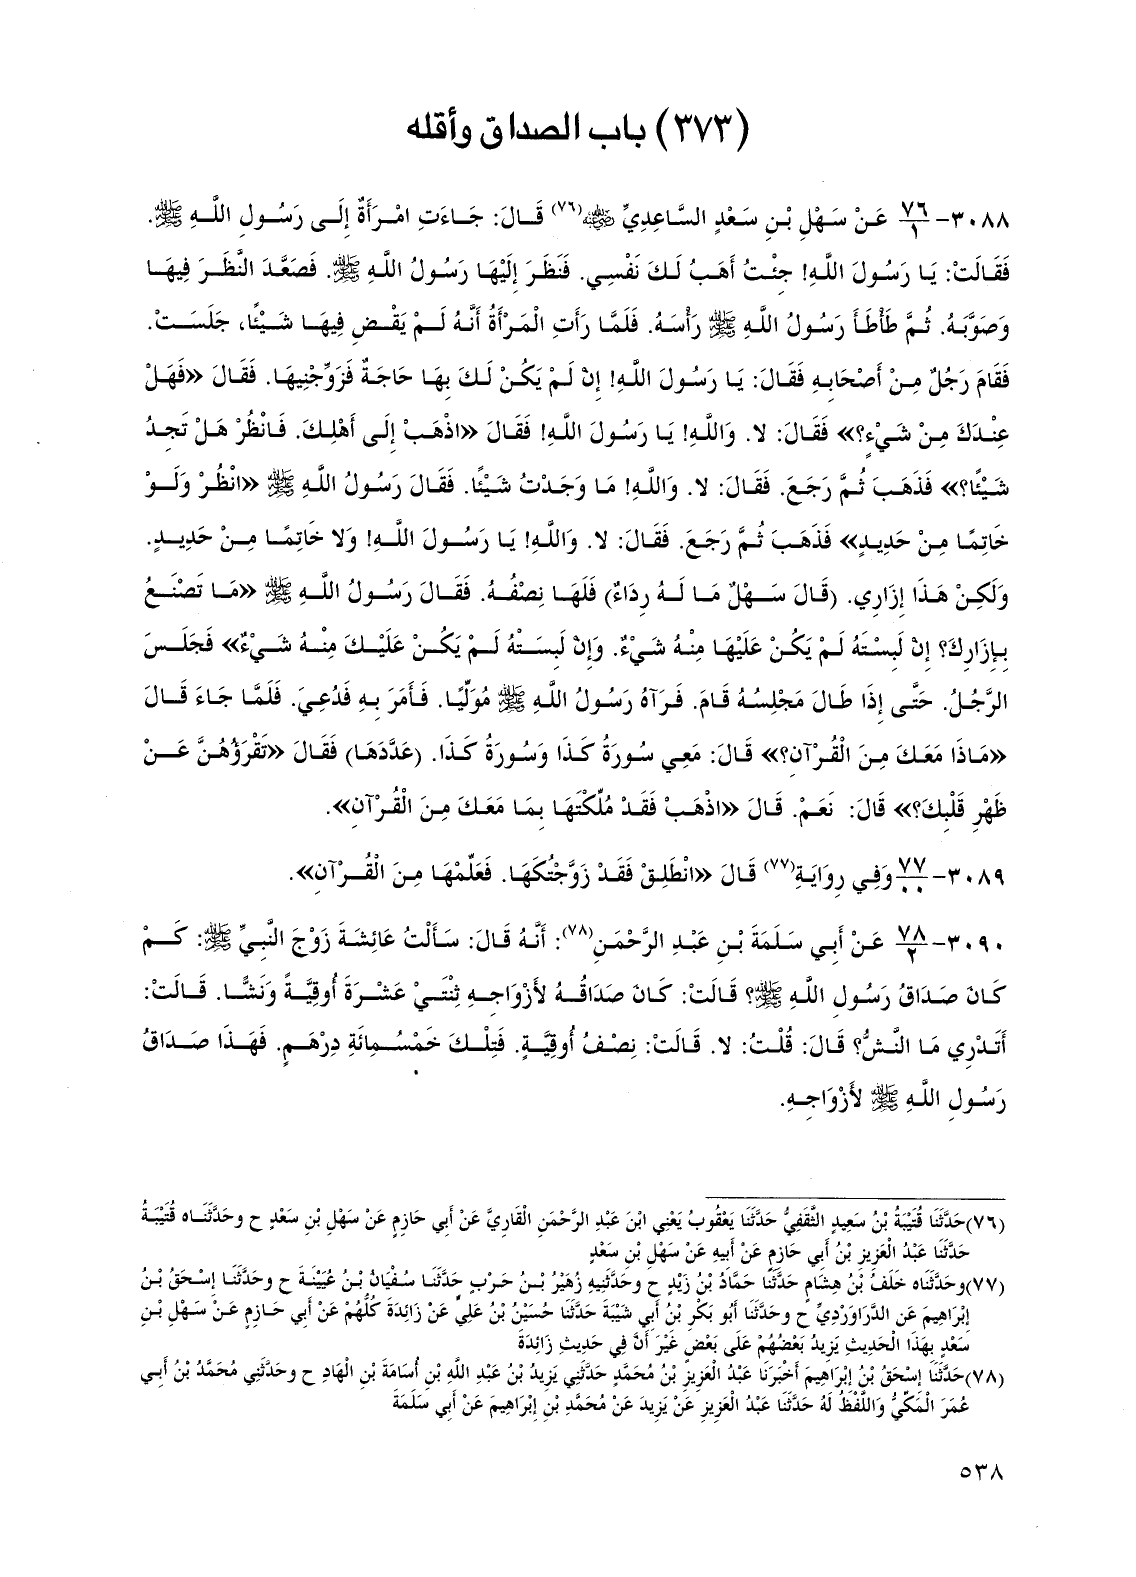 (٣٧٣) باب الصداق وأقله
٣٠٨٨- ٧٦/١ عَنْ سَهْلِ بْنِ سَعْدٍ السَّاعِدِيِّ ﵁(٧٦) قَالَ: جَاءَتِ امْرَأَةٌ إِلَى رَسُولِ اللَّهِ ﷺ.
فَقَالَتْ: يَا رَسُولَ اللَّهِ! جِئْتُ أَهَبُ لَكَ نَفْسِي. فَنَظَرَ إِلَيْهَا رَسُولُ اللَّهِ ﷺ. فَصَعَّدَ النَّظَرَ فِيهَا
وَصَوَّبَهُ. ثُمَّ طَأْطَأَ رَسُولُ اللَّهِ ﷺ رَأْسَهُ. فَلَمَّا رَأَتِ الْمَرْأَةُ أَنَّهُ لَمْ يَقْضِ فِيهَا شَيْئًا، جَلَسَتْ.
فَقَامَ رَجُلٌ مِنْ أَصْحَابِهِ فَقَالَ: يَا رَسُولَ اللَّهِ! إِنْ لَمْ يَكُنْ لَكَ بِهَا حَاجَةٌ فَزَوِّجْنِيهَا. فَقَالَ «فَهَلْ
عِنْدَكَ مِنْ شَيْءٍ؟» فَقَالَ: لا. وَاللَّهِ! يَا رَسُولَ اللَّهِ! فَقَالَ «اذْهَبْ إِلَى أَهْلِكَ. فَانْظُرْ هَلْ تَجِدُ
شَيْئًا؟» فَذَهَبَ ثُمَّ رَجَعَ. فَقَالَ: لا. وَاللَّهِ! مَا وَجَدْتُ شَيْئًا. فَقَالَ رَسُولُ اللَّهِ ﷺ «انْظُرْ وَلَوْ
خَاتِمًا مِنْ حَدِيدٍ» فَذَهَبَ ثُمَّ رَجَعَ. فَقَالَ: لا. وَاللَّهِ! يَا رَسُولَ اللَّهِ! وَلا خَاتِمًا مِنْ حَدِيدٍ.
وَلَكِنْ هَذَا إِزَارِي. (قَالَ سَهْلٌ مَا لَهُ رِدَاءٌ) فَلَهَا نِصْفُهُ. فَقَالَ رَسُولُ اللَّهِ ﷺ «مَا تَصْنَعُ
بِإِزَارِكَ؟ إِنْ لَبِسْتَهُ لَمْ يَكُنْ عَلَيْهَا مِنْهُ شَيْءٌ. وَإِنْ لَبِسَتْهُ لَمْ يَكُنْ عَلَيْكَ مِنْهُ شَيْءٌ» فَجَلَسَ
الرَّجُلُ. حَتَّى إِذَا طَالَ مَجْلِسُهُ قَامَ. فَرَآهُ رَسُولُ اللَّهِ ﷺ مُوَلِّيًا. فَأَمَرَ بِهِ فَدُعِيَ. فَلَمَّا جَاءَ قَالَ
«مَاذَا مَعَكَ مِنَ الْقُرْآنِ؟» قَالَ: مَعِي سُورَةُ كَذَا وَسُورَةُ كَذَا. (عَدَّدَهَا) فَقَالَ «تَقْرَؤُهُنَّ عَنْ
ظَهْرِ قَلْبِكَ؟» قَالَ: نَعَمْ. قَالَ «اذْهَبْ فَقَدْ مُلِّكْتَهَا بِمَا مَعَكَ مِنَ الْقُرْآنِ».
٣٠٨٩- ٧٧/.. وَفِي رِوَايَةٍ(٧٧) قَالَ «انْطَلِقْ فَقَدْ زَوَّجْتُكَهَا. فَعَلِّمْهَا مِنَ الْقُرْآنِ».
٣٠٩٠- ٧٨/٢ عَنْ أَبِي سَلَمَةَ بْنِ عَبْدِ الرَّحْمَنِ(٧٨): أَنَّهُ قَالَ: سَأَلْتُ عَائِشَةَ زَوْجَ النَّبِيِّ ﷺ: كَمْ
كَانَ صَدَاقُ رَسُولِ اللَّهِ ﷺ؟ قَالَتْ: كَانَ صَدَاقُهُ لأَزْوَاجِهِ ثِنْتَيْ عَشْرَةَ أُوقِيَّةً وَنَشًّا. قَالَتْ:
أَتَدْرِي مَا النَّشُّ؟ قَالَ: قُلْتُ: لا. قَالَتْ: نِصْفُ أُوقِيَّةٍ. فَتِلْكَ خَمْسُمِائَةِ دِرْهَمٍ. فَهَذَا صَدَاقُ
رَسُولِ اللَّهِ ﷺ لأَزْوَاجِهِ.
(٧٦)حَدَّثَنَا قُتَيْبَةُ بْنُ سَعِيدٍ الثَّقَفِيُّ حَدَّثَنَا يَعْقُوبُ يَعْنِي ابْنَ عَبْدِ الرَّحْمَنِ الْقَارِيَّ عَنْ أَبِي حَازِمٍ عَنْ سَهْلِ بْنِ سَعْدٍ ح وحَدَّثَنَاه قُتَيْبَةُ
حَدَّثَنَا عَبْدُ الْعَزِيزِ بْنُ أَبِي حَازِمٍ عَنْ أَبِيهِ عَنْ سَهْلِ بْنِ سَعْدٍ
(٧٧)وحَدَّثَنَاه خَلَفُ بْنُ هِشَامٍ حَدَّثَنَا حَمَّادُ بْنُ زَيْدٍ ح وحَدَّثَنِيهِ زُهَيْرُ بْنُ حَرْبٍ حَدَّثَنَا سُفْيَانُ بْنُ عُيَيْنَةَ ح وحَدَّثَنَا إِسْحَقُ بْنُ
إِبْرَاهِيمَ عَنِ الدَّرَاوَرْدِيِّ ح وحَدَّثَنَا أَبُو بَكْرِ بْنُ أَبِي شَيْبَةَ حَدَّثَنَا حُسَيْنُ بْنُ عَلِيٍّ عَنْ زَائِدَةَ كُلُّهُمْ عَنْ أَبِي حَازِمٍ عَنْ سَهْلِ بْنِ
سَعْدٍ بِهَذَا الْحَدِيثِ يَزِيدُ بَعْضُهُمْ عَلَى بَعْضٍ غَيْرَ أَنَّ فِي حَدِيثِ زَائِدَةَ
(٧٨)حَدَّثَنَا إِسْحَقُ بْنُ إِبْرَاهِيمَ أَخْبَرَنَا عَبْدُ الْعَزِيزِ بْنُ مُحَمَّدٍ حَدَّثَنِي يَزِيدُ بْنُ عَبْدِ اللَّهِ بْنِ أُسَامَةَ بْنِ الْهَادِ ح وحَدَّثَنِي مُحَمَّدُ بْنُ أَبِي
عُمَرَ الْمَكِّيُّ وَاللَّفْظُ لَهُ حَدَّثَنَا عَبْدُ الْعَزِيزِ عَنْ يَزِيدَ عَنْ مُحَمَّدِ بْنِ إِبْرَاهِيمَ عَنْ أَبِي سَلَمَةَ
٥٣٨